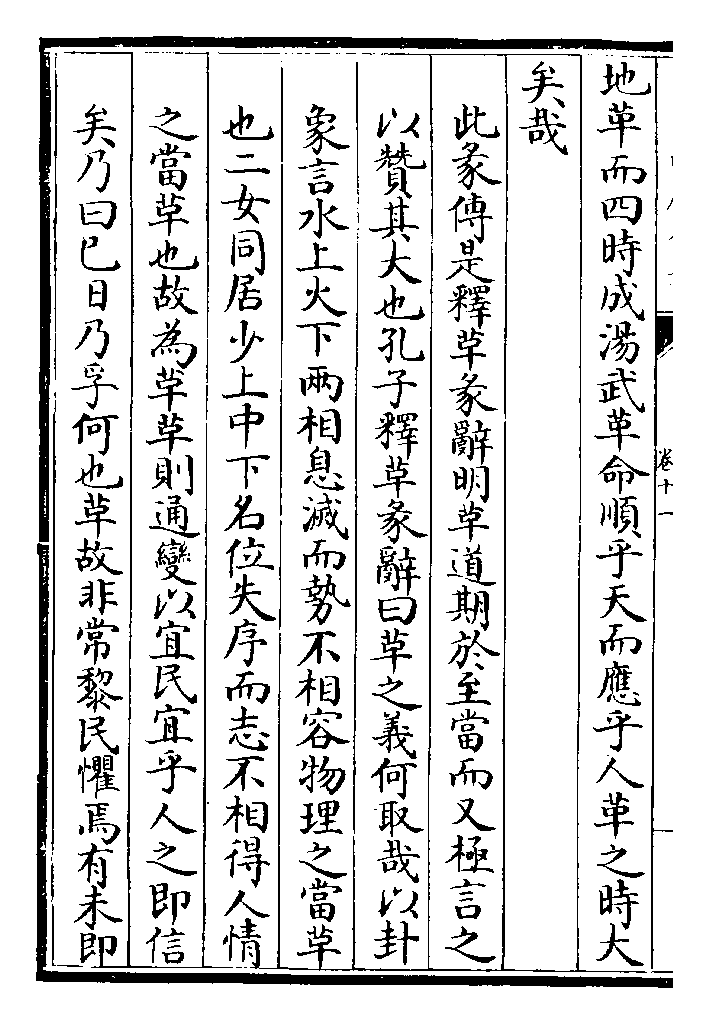 地革而四時成湯武革命順乎天而應乎人革之時大
矣哉
此彖傳是釋革彖辭明革道期於至當而又極言之
以贊其大也孔子釋革彖辭曰革之義何取哉以卦
象言水上火下兩相息滅而勢不相容物理之當革
也二女同居少上中下名位失序而志不相得人情
之當革也故為革革則通變以宜民宜乎人之即信
矣乃曰巳日乃孚何也革故非常黎民懼焉有未即
卷十一